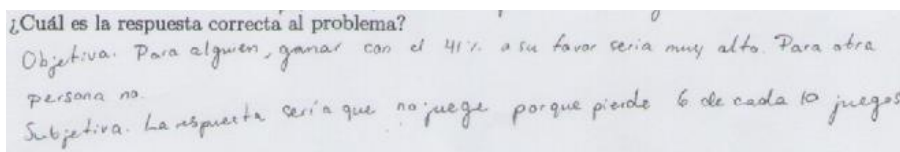 ¿Cuál es la respuesta correcta al problema?
Objetiva. Para alguien, ganar con el 41% a su favor seria muy alto. Para otra
persona no.
Subjetiva. La respuesta sería que no juege porque pierde 6 de cada 10 juegos